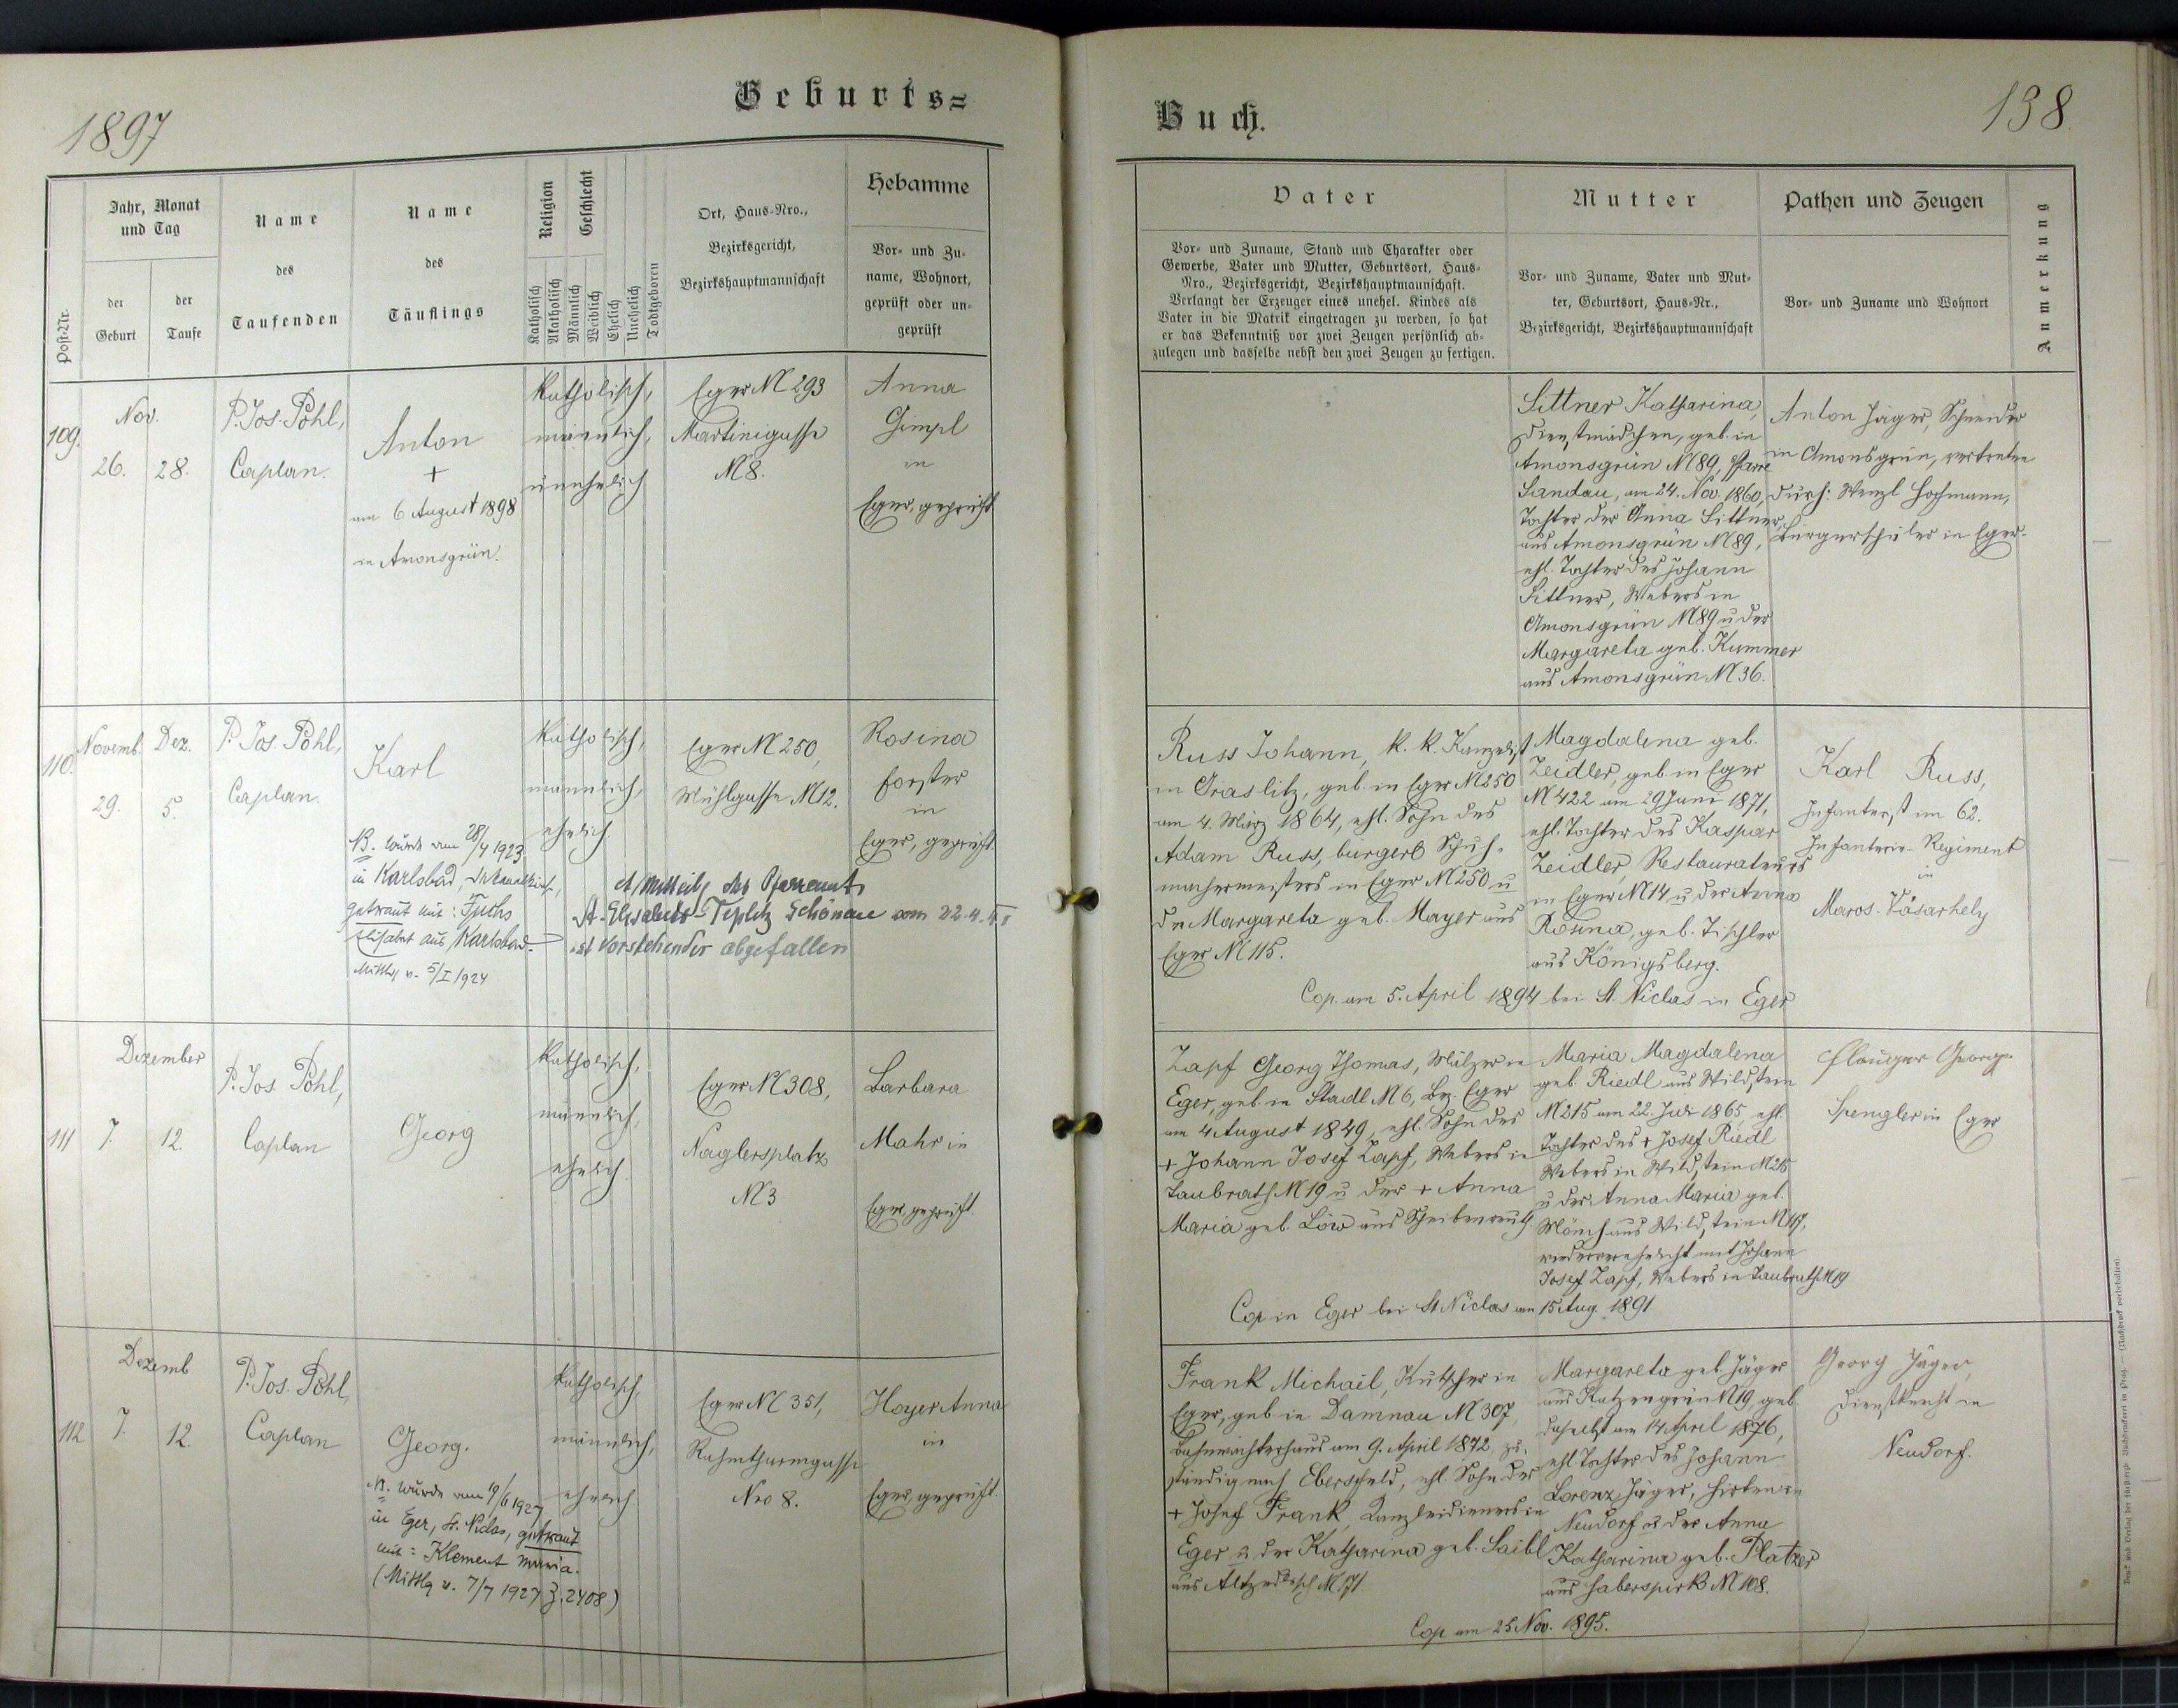 1897
Geburts=
Jahr, Monat
und Tag
Name
des
Taufenden
Name
des
Täuflings
Religion
Geschlecht
Ort, Haus-Nro.,
Bezirksgericht,
Bezirkshauptmannschaft
Hebamme
Post-Nr.
der
Geburt
der
Taufe
Katholisch
Akatholisch
Männlich
Weiblich
Ehelich
Unehelich
Todtgeboren
Vor- und Zu-
name, Wohnort,
geprüft oder un-
geprüft
109.
Nov.
26. 28.
P. Jos. Pohl,
Caplan.
Anton
+
am 6 August 1898
in Amonsgrün.
katholisch,
männlich,
unehelich
Eger N 293
Martinigasse
N 8.
Anna
Gimpl
in
Eger, geprüft
110.
Novemb. Dez.
29. 5.
P. Jos. Pohl,
Caplan.
Karl
NB. wurde am 28/4 1923
in Karlsbad, Dekanalkirche,
getraut mit: Fuchs
Elisabet aus Karlsbad.
Mittlg v. 5/I 1924
katholisch,
männlich,
ehelich
Eger N 250,
Mühlgasse N 12.
Rosina
Forster
in
Eger, geprüft.
lt. Mitteilg des Pfarramts
St. Elisabeth-Teplitz Schönau vom 22.4.
ist Vorstehender abgefallen
111
Dezember
7. 12.
P. Jos. Pohl,
Caplan
Georg
katholisch,
männlich,
ehelich.
Eger N 308,
Naglersplatz
N 3
Barbara
Mahr in
Eger, geprüft.
112
Dezemb
7. 12.
P. Jos. Pohl,
Caplan
Georg.
NB. wurde am 19/6 1927
in Eger, St. Niclas, getraut
mit: Klement Maria.
(Mittlg v. 7/7 1927 Z. 2408)
katholisch,
männlich,
ehelich
Eger N 351,
Rahmthurmgasse
Nro 8.
Hoyer Anna
in
Eger, geprüft.
Buch.
138.
Vater
Mutter
Pathen und Zeugen
Anmerkung
Vor- und Zuname, Stand und Charakter oder
Gewerbe, Vater und Mutter, Geburtsort, Haus-
Nro., Bezirksgericht, Bezirkshauptmannschaft.
Verlangt der Erzeuger eines unehel. Kindes als
Vater in die Matrik eingetragen zu werden, so hat
er das Bekenntniß vor zwei Zeugen persönlich ab-
zulegen und dasselbe nebst den zwei Zeugen zu fertigen.
Vor- und Zuname, Vater und Mut-
ter, Geburtsort, Haus-Nr.,
Bezirksgericht, Bezirkshauptmannschaft
Vor- und Zuname und Wohnort
Sittner Katharina,
Dienstmädchen, geb. in
Amonsgrün N 89, Pfarre
Sandau, am 24. Nov. 1860,
Tochter der Anna Sittner,
aus Amonsgrün N 89,
ehl. Tochter des Johann
Sittner, Webers in
Amonsgrün N 89 u der
Margareta geb. Kummer
aus Amonsgrün N 36.
Anton Jäger, Schneider
in Amonsgrün, vertreten
durch: Wenzl Hofmann,
Bürgerschüler in Eger.
Russ Johann, k. k. Kanzelist
in Graslitz, geb. in Eger N 250
am 4. März 1864, ehl. Sohn des
Adam Russ, bürgerl Schuh-
machermeisters in Eger N 250 u
der Margareta geb. Mayer aus
Eger N 115.
Magdalena geb.
Zeidler, geb. in Eger
N 422 am 29 Juni 1871,
ehl. Tochter des Kaspar
Zeidler, Restaurateurs
in Eger N 14 u der Anna
Rosina, geb. Tischler
aus Königsberg.
Cop. am 5. April 1894 bei St. Niclas in Eger
Karl Russ,
Infanterist im 62.
Infanterie-Regiment
in
Maros-Vásarhely
Zapf Georg Thomas, Mälzer in
Eger, geb. in Stadl N 6, Bz. Eger
am 4 August 1849, ehl. Sohn des
+ Johann Josef Zapf, Webers in
Taubrath N 19 u der + Anna
Maria geb. Löw aus Scheibenreuth
Maria Magdalena
geb. Riedl aus Wildstein
N 215 am 22. 1865, ehl.
Tochter des + Josef Riedl
Webers in Wildstein
u der Anna Maria geb.
Mönch aus Wildstein
wiederverehelicht mit Johann
Josef Zapf, Webers in Taubrath N 19
Cop in Eger bei St Niclas am 15 Aug. 1891
Georg.
Spengler in Eger
Frank Michael, Kutscher in
Eger, geb in Damnau N 307,
Bahnwächterhaus am 9. April 1872, zu-
ständig nach Ebersfeld, ehl. Sohn des
+ Josef Frank, Kanzleidieners in
Eger u der Katharina geb. Saibl
aus Altzedlisch N 171
Margareta geb. Jäger
aus Katzengrün N 19, geb.
daselbst am 14 April 1876,
ehl. Tochter des Johann
Lorenz Jäger, Hirten in
Neudorf u der Anna
Katharina geb. Platzer
aus Haberspirk N 108.
Cop am 25 Nov. 1895.
Georg Jäger,
Dienstknecht in
Neudorf.